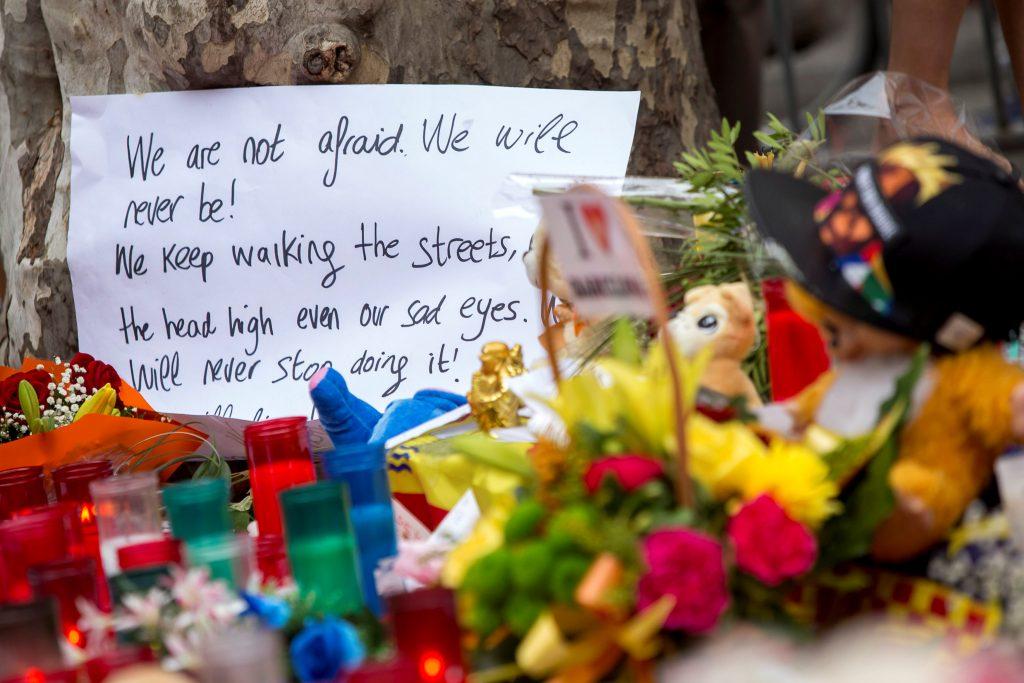 We are not afraid. We will
never be!
We keep walking the streets,
the head high even our sad eyes.
Will never stop doing it!
I